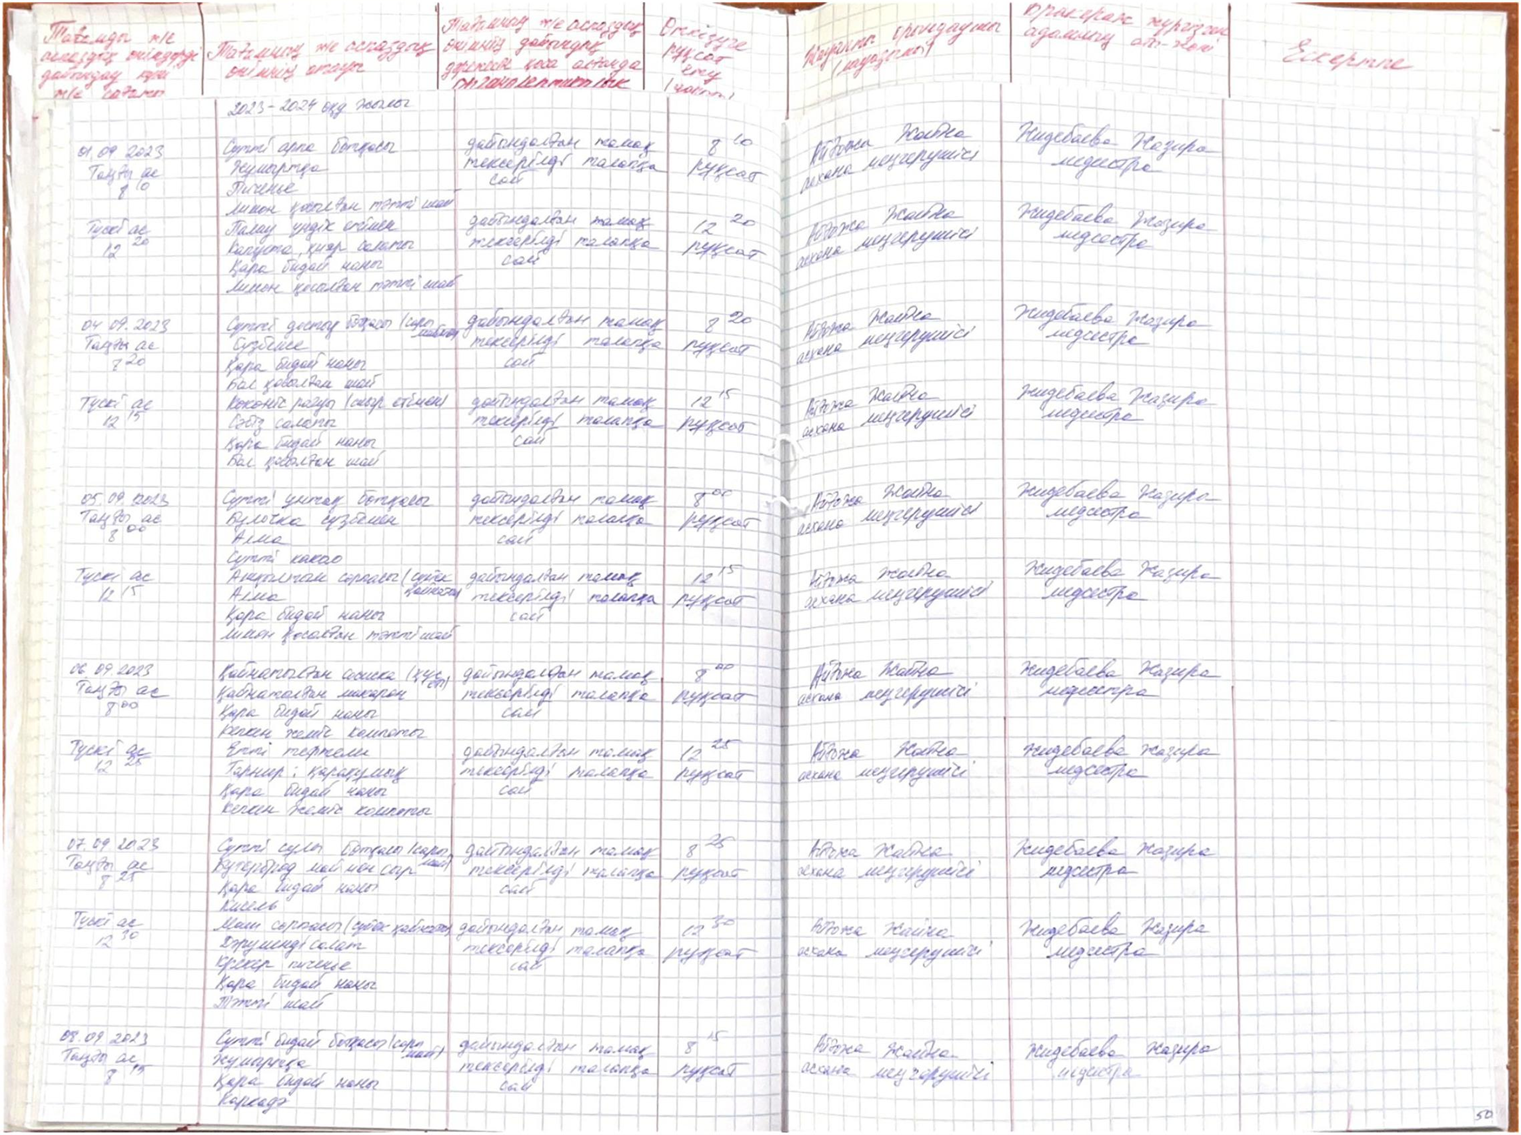 Тағамды ж/е аспаздық өнімдерді дайындау күні ж/е сағаты
Тағамның ж/е аспаздық өнімнің атауы
Тағамның ж/е аспаздық өнімнің дайындық дәрежесін қоса алғанда органолептикалық
Өткізуге рұқсат ету (уақыты)
Жауапты орындаушы (лауазымы)
Бракераж жүргізген адамның аты-жөні
Ескертпе
2023-2024 оқу жылы
01.09 2023 Сүтті арпа ботқасы дайындалған тамақ 8 10 Айтжа Жайна Жидебаева Жазира
Таңғы ас Жұмыртқа тексерілді талапқа рұқсат асхана меңгерушісі медсестра
8 10 Печенье сай
Лимон қосылған тәтті шай
Түскі ас Палау үндік етімен дайындалған тамақ 12 20 Айтжа Жайна Жидебаева Жазира
12 20 Капуста, қияр салаты тексерілді талапқа рұқсат асхана меңгерушісі медсестра
Қара бидай наны сай
Лимон қосылған тәтті шай
04 09. 2023 Сүтті достық ботқасы (сары маймен) дайындалған тамақ 8 20 Айтжа Жайна Жидебаева Жазира
Таңғы ас Сүзбеше тексерілді талапқа рұқсат асхана меңгерушісі медсестра
8 20 Қара бидай наны сай
Бал қосылған шай
Түскі ас Көкөніс рагуы (сиыр етімен) дайындалған тамақ 12 15 Айтжа Жайна Жидебаева Жазира
12 15 Сәбіз салаты тексерілді талапқа рұқсат асхана меңгерушісі медсестра
Қара бидай наны сай
Бал қосылған шай
05.09 2023 Сүтті ұнтақ ботқасы дайындалған тамақ 8 00 Айтжа Жайна Жидебаева Жазира
Таңғы ас Булочка сүзбемен тексерілді талапқа рұқсат асхана меңгерушісі медсестра
8 00 Алма сай
Сүтті какао
Түскі ас Ашқылтым сорпасы (сүйек қайнатпа) дайындалған тамақ 12 15 Айтжа Жайна Жидебаева Жазира
12 15 Алма тексерілді талапқа рұқсат асхана меңгерушісі медсестра
Қара бидай наны сай
Лимон қосылған тәтті шай
06.09 2023 Қайнатылған сосиска (құс еті) дайындалған тамақ 8 00 Айтжа Жайна Жидебаева Жазира
Таңғы ас Қайнатылған макарон тексерілді талапқа рұқсат асхана меңгерушісі медсестра
8 00 Қара бидай наны сай
Кепкен жеміс компоты
Түскі ас Етті тефтели дайындалған тамақ 12 25 Айтжа Жайна Жидебаева Жазира
12 25 Гарнир: қарақұмық тексерілді талапқа рұқсат асхана меңгерушісі медсестра
Қара бидай наны сай
Кепкен жеміс компоты
07.09 2023 Сүтті сұлы ботқасы (сары май) дайындалған тамақ 8 25 Айтжа Жайна Жидебаева Жазира
Таңғы ас Бутерброд май мен сыр тексерілді талапқа рұқсат асхана меңгерушісі медсестра
8 25 Қара бидай наны сай
Кисель
Түскі ас Маш сорпасы (сүйек қайнатпа) дайындалған тамақ 12 30 Айтжа Жайна Жидебаева Жазира
12 30 Дәруменді салат тексерілді талапқа рұқсат асхана меңгерушісі медсестра
Крекер печенье сай
Қара бидай наны
Тәтті шай
08.09. 2023 Сүтті бидай ботқасы (сары май) дайындалған тамақ 8 15 Айтжа Жайна Жидебаева Жазира
Таңғы ас Жұмыртқа тексерілді талапқа рұқсат асхана меңгерушісі медсестра
8 15 Қара бидай наны сай
Каркадэ
50